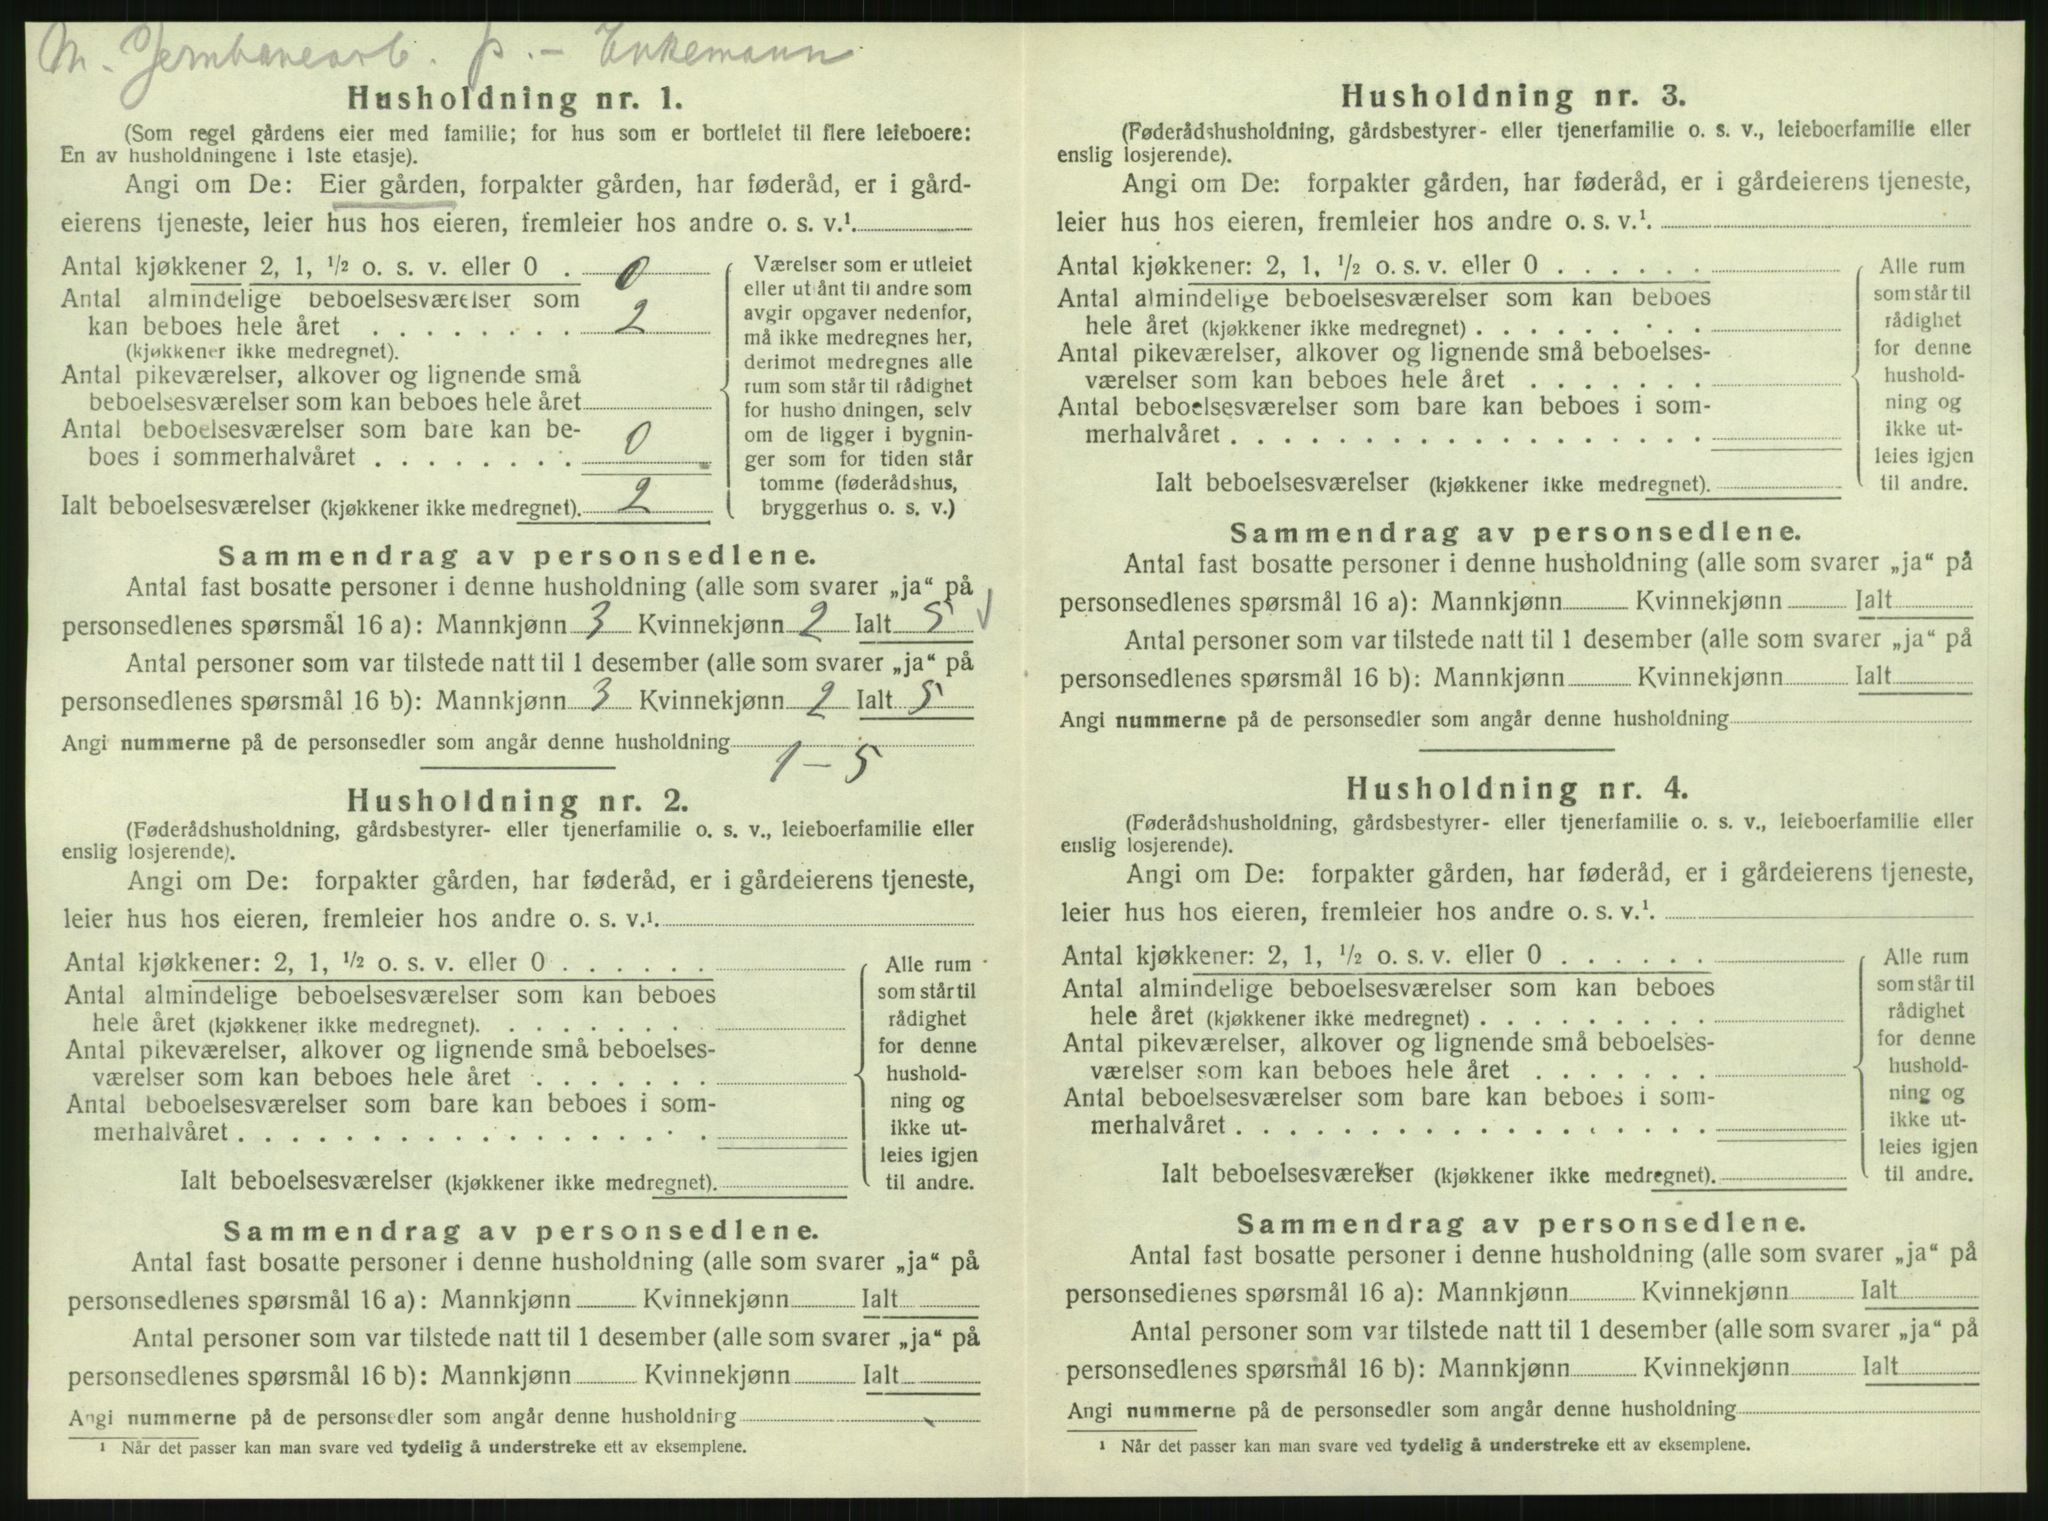 M. Jernbanearb. p. - Enkemann
Husholdning nr. 1.
(Som regel gårdens eier med familie; for hus som er bortleiet til flere leieboere:
En av husholdningene i 1ste etasje).
Angi om De: Eier gården, forpakter gården, har føderåd, er i gård-
eierens tjeneste, leier hus hos eieren, fremleier hos andre o. s. v.¹
Antal kjøkkener 2, 1, ½ o. s. v. eller 0 . 0
Antal almindelige beboelsesværelser som
kan beboes hele året . . . . . . . . 2
(kjøkkener ikke medregnet).
Antal pikeværelser, alkover og lignende små
beboelsesværelser som kan beboes hele året
Antal beboelsesværelser som bare kan be-
boes i sommerhalvåret . . . . . . . . 0
Ialt beboelsesværelser (kjøkkener ikke medregnet). 2
Værelser som er utleiet
eller utlånt til andre som
avgir opgaver nedenfor,
må ikke medregnes her,
derimot medregnes alle
rum som står til rådighet
for husho dningen, selv
om de ligger i bygnin-
ger som for tiden står
tomme (føderådshus,
bryggerhus o. s. v.)
Sammendrag av personsedlene.
Antal fast bosatte personer i denne husholdning (alle som svarer „ja“ på
personsedlenes spørsmål 16 a): Mannkjønn 3 Kvinnekjønn 2 Ialt 5 √
Antal personer som var tilstede natt til 1 desember (alle som svarer „ja“ på
personsedlenes spørsmål 16 b): Mannkjønn 3 Kvinnekjønn 2 Ialt 5
Angi nummerne på de personsedler som angår denne husholdning
1 – 5
Husholdning nr. 2.
(Føderådshusholdning, gårdsbestyrer- eller tjenerfamilie o. s. v., leieboerfamilie eller
enslig losjerende).
Angi om De: forpakter gården, har føderåd, er i gårdeierens tjeneste,
leier hus hos eieren, fremleier hos andre o. s. v.¹.
Antal kjøkkener: 2, 1, ½ o. s. v. eller 0 . . . . . .
Antal almindelige beboelsesværelser som kan beboes
hele året (kjøkkener ikke medregnet). . . . . . . . .
Antal pikeværelser, alkover og lignende små beboelses-
værelser som kan beboes hele året . . . . . . .
Antal beboelsesværelser som bare kan beboes i som-
merhalvåret . . . . . . . . . . . . . . . . . .
Ialt beboelsesværelser (kjøkkener ikke medregnet).
Alle rum
som står til
rådighet
for denne
hushold-
ning og
ikke ut-
leies igjen
til andre.
Sammendrag av personsedlene.
Antal fast bosatte personer i denne husholdning (alle som svarer „ja“ på
personsedlenes spørsmål 16 a): Mannkjønn Kvinnekjønn Ialt
Antal personer som var tilstede natt til 1 desember (alle som svarer „ja“ på
personsedlenes spørsmål 16 b): Mannkjønn Kvinnekjønn Ialt
Angi nummerne på de personsedler som angår denne husholdning
¹ Når det passer kan man svare ved tydelig å understreke ett av eksemplene.
Husholdning nr. 3.
(Føderådshusholdning, gårdsbestyrer- eller tjenerfamilie o. s. v., leieboerfamilie eller
enslig losjerende).
Angi om De: forpakter gården, har føderåd, er i gårdeierens tjeneste,
leier hus hos eieren, fremleier hos andre o. s. v.¹.
Antal kjøkkener: 2, 1, ½ o. s. v. eller 0 . . . . . .
Antal almindelige beboelsesværelser som kan beboes
hele året (kjøkkener ikke medregnet) . . . . . . . . .
Antal pikeværelser, alkover og lignende små beboelses-
værelser som kan beboes hele året . . . . . . .
Antal beboelsesværelser som bare kan beboes i som-
merhalvåret . . . . . . . . . . . . . . . . . .
Ialt beboelsesværelser (kjøkkener ikke medregnet).
Alle rum
som står til
rådighet
for denne
hushold-
ning og
ikke ut-
leies igjen
til andre.
Sammendrag av personsedlene.
Antal fast bosatte personer i denne husholdning (alle som svarer „ja“ på
personsedlenes spørsmål 16 a): Mannkjønn Kvinnekjønn Ialt
Antal personer som var tilstede natt til 1 desember (alle som svarer „ja“ på
personsedlenes spørsmål 16 b): Mannkjønn Kvinnekjønn Ialt
Angi nummerne på de personsedler som angår denne husholdning
Husholdning nr. 4.
(Føderådshusholdning, gårdsbestyrer- eller tjenerfamilie o. s. v., leieboerfamilie eller
enslig losjerende).
Angi om De: forpakter gården, har føderåd, er i gårdeierens tjeneste,
leier hus hos eieren, fremleier hos andre o. s. v.¹.
Antal kjøkkener: 2, 1, ½ o. s. v. eller 0 . . . . . .
Antal almindelige beboelsesværelser som kan beboes
hele året (kjøkkener ikke medregnet) . . . . . . . . .
Antal pikeværelser, alkover og lignende små beboelses-
værelser som kan beboes hele året . . . . . . .
Antal beboelsesværelser som bare kan beboes i som-
merhalvåret . . . . . . . . . . . . . . . . . .
Ialt beboelsesværelser (kjøkkener ikke medregnet).
Alle rum
som står til
rådighet
for denne
hushold-
ning og
ikke ut-
leies igjen
til andre.
Sammendrag av personsedlene.
Antal fast bosatte personer i denne husholdning (alle som svarer „ja“ på
personsedlenes spørsmål 16 a): Mannkjønn Kvinnekjønn Ialt
Antal personer som var tilstede natt til 1 desember (alle som svarer „ja“ på
personsedlenes spørsmål 16 b): Mannkjønn Kvinnekjønn Ialt
Angi nummerne på de personsedler som angår denne husholdning
¹ Når det passer kan man svare ved tydelig å understreke ett av eksemplene.